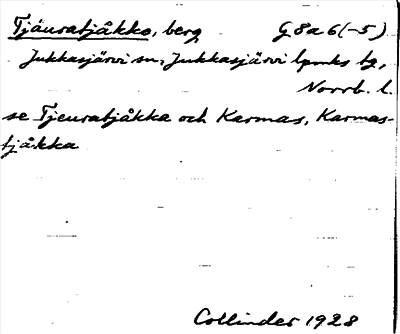 Tjäuratjåkko, berg G 8a 6(-5)
Jukkasjärvi sn, Jukkasjärvi lpmks tg,
Norrb. l.
se Tjeuratjåkka och Karmas, Karmas-
tjåkka
Collinder 1928